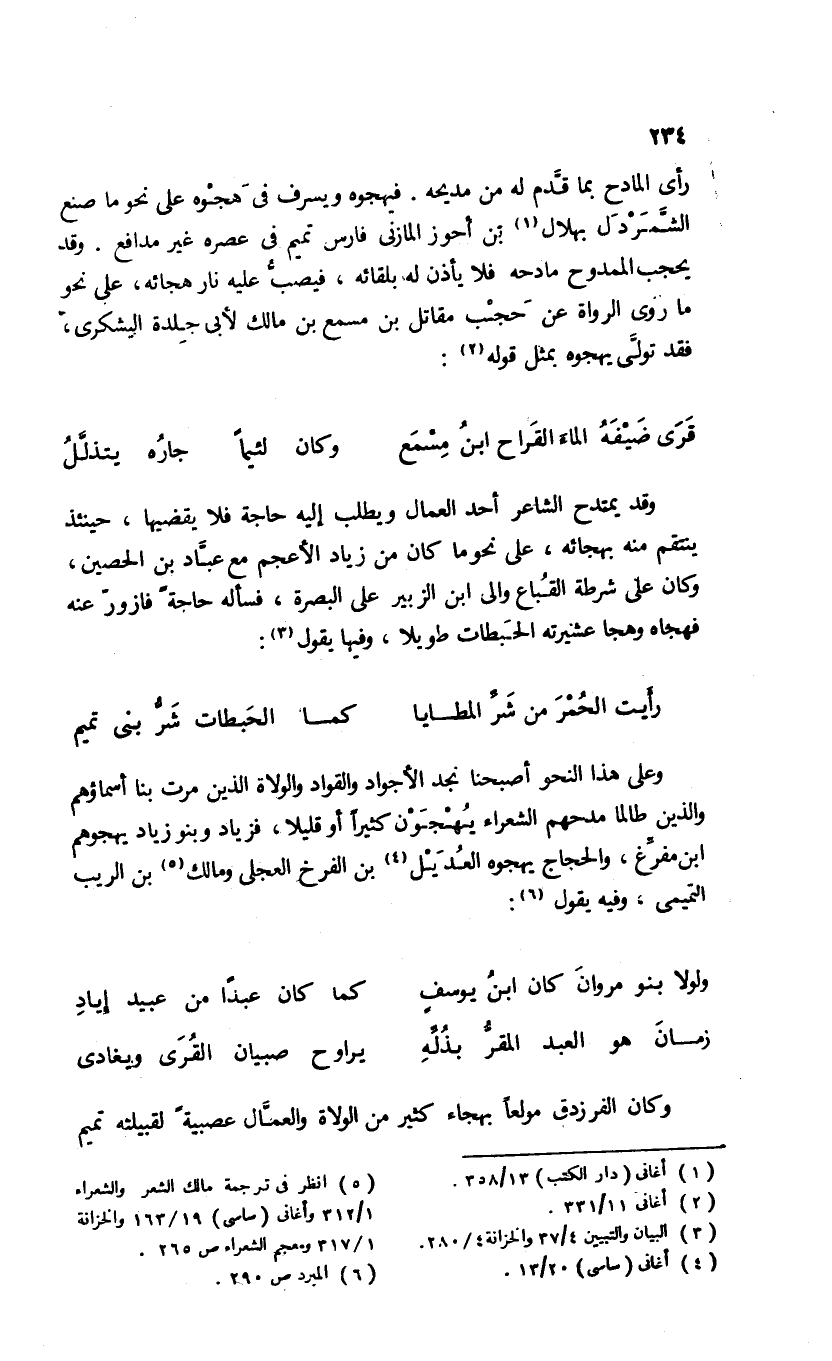 ٢٣٤
رأى المادح بما قدَّم له من مديحه . فيهجوه ويسرف فى هَجْوه على نحو ما صنع
الشَّمَرْدَل بهلال(١) بْن أحوز المازنى فارس تميم فى عصره غير مدافع . وقد
يحجب الممدوح مادحه فلا يأذن له بلقائه ، فيصبُّ عليه نار هجائه ، على نحو
ما رَوى الرواة عن حَجْب مقاتل بن مسمع بن مالك لأبى جِلدة اليشكرى ،
فقد تولَّى يهجوه بمثل قوله(٢) :
قَرَى ضَيْفَهُ الماءَ القَراح ابنُ مِسْمَع وكان لئيماً جارُه يتذلَّلُ
وقد يمتدح الشاعر أحد العمال ويطلب إليه حاجة فلا يقضيها ، حينئذ
ينتقم منه بهجائه ، على نحو ما كان من زياد الأعجم مع عبَّاد بن الحصين ،
وكان على شرطة القُباع والى ابن الزبير على البصرة ، فسأله حاجةً فازورّ عنه
فهجاه وهجا عشيرته الحَبطات طويلا ، وفيها يقول(٣) :
رأَيت الحُمْرَ من شَرِّ المطـايا كمـا الحَبطات شَرُّ بنى تميم
وعلى هذا النحو أصبحنا نجد الأجواد والقواد والولاة الذين مرت بنا أسماؤهم
والذين طالما مدحهم الشعراء يُهْجَوْن كثيراً أو قليلا ، فزياد وبنو زياد يهجوهم
ابن مفرِّغ ، والحجاج يهجوه العُدَيْل(٤) بن الفرخ العجلى ومالك(٥) بن الريب
التميمى ، وفيه يقول (٦) :
ولولا بنو مروانَ كان ابنُ يوسفٍ كما كان عبدًا من عبيد إيادِ
زمـانَ هو العبد المقرُّ بذُلِّهِ يراوح صبيان القُرَى ويغادى
وكان الفرزدق مولعاً بهجاء كثير من الولاة والعمَّال عصبيةً لقبيلته تميم
(١) أغانى (دار الكتب) ٣٥٨/١٣ .
(٢) أغانى ٣٣١/١١ .
(٣) البيان والتبيين ٣٧/٤ والخزانة ٢٨٠/٤.
(٤) أغانى (ساسى) ١٣/٢٠ .
(٥) انظر فى ترجمة مالك الشعر والشعراء
٣١٢/١ وأغانى (ساسى) ١٦٣/١٩ والخزانة
٣١٧/١ ومعجم الشعراء ص ٢٦٥ .
(٦) المبرد ص ٢٩٠ .